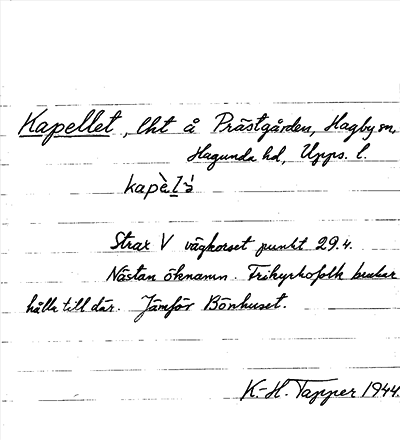 Kapellet, lht å Prästgården, Hagby sn,
Hagunda hd, Upps. l.
Strax V vägkorset punkt 29.4.
Nästan öknamn. Frikyrkofolk brukar
hålla till där. Jämför Bönhuset.
K.-H. Tapper 1944.